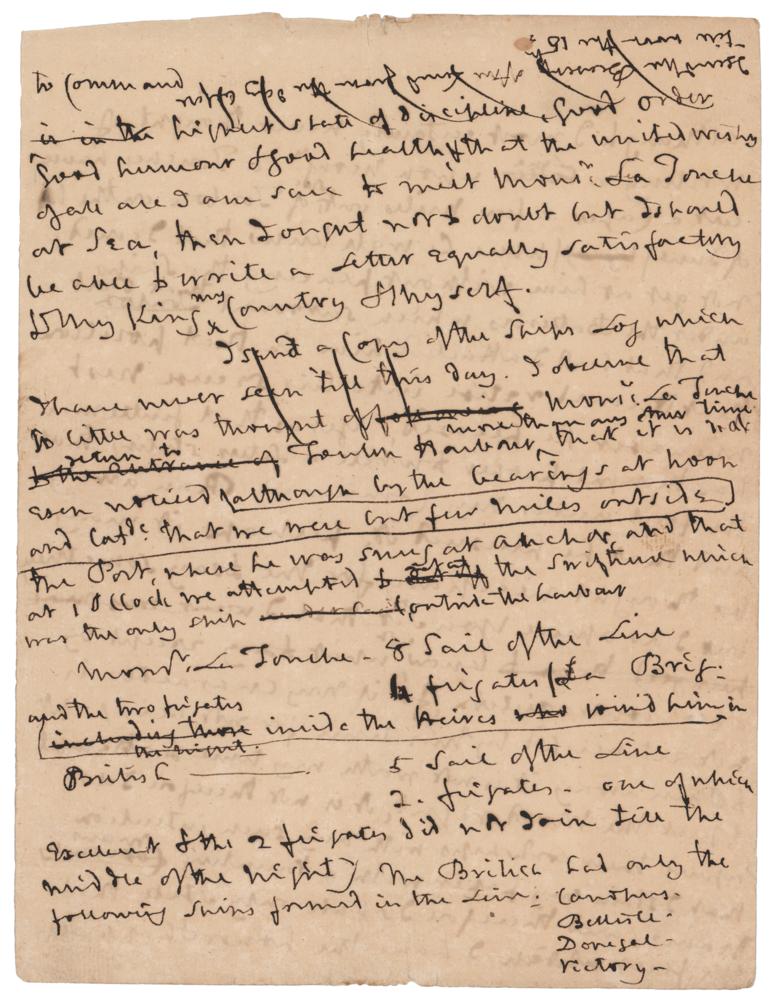 to Command
is in the highest state of discipline, Good order
Good humour & good health & that at the united wishes
of all are I am sure to meet Monsr. La Touche
at Sea, then I ought not to doubt but I should
be able to write a Letter equally satisfactory
to My King my Country & Myself.
I send a Copy of the Ships Log which
I have never seen till this day. I observe that
so little was thought of following Monsr. La Touche
return to more than any other time
to the entrance of Toulon Harbour, that it is not
even noticed although by the bearings at Noon
and Catde: that we were but few miles outside
the Port, where he was snug at anchor, and that
at 1 OClock we attempted to cut off the Swiftsure which
was the only ship under Sail outside the harbour
Monsr. La Touche - 8 Sail of the Line
4 frigates & a Brig.
and the two frigates
including those inside the Hieres who joind him in
the night.
British 5 Sail of the Line
2. frigates - one of which
Excellent & the 2 frigates did not Join till the
middle of the night) The British had only the
following Ships formed in the Line: Canopus.
Bellisle.
Donegal
Victory